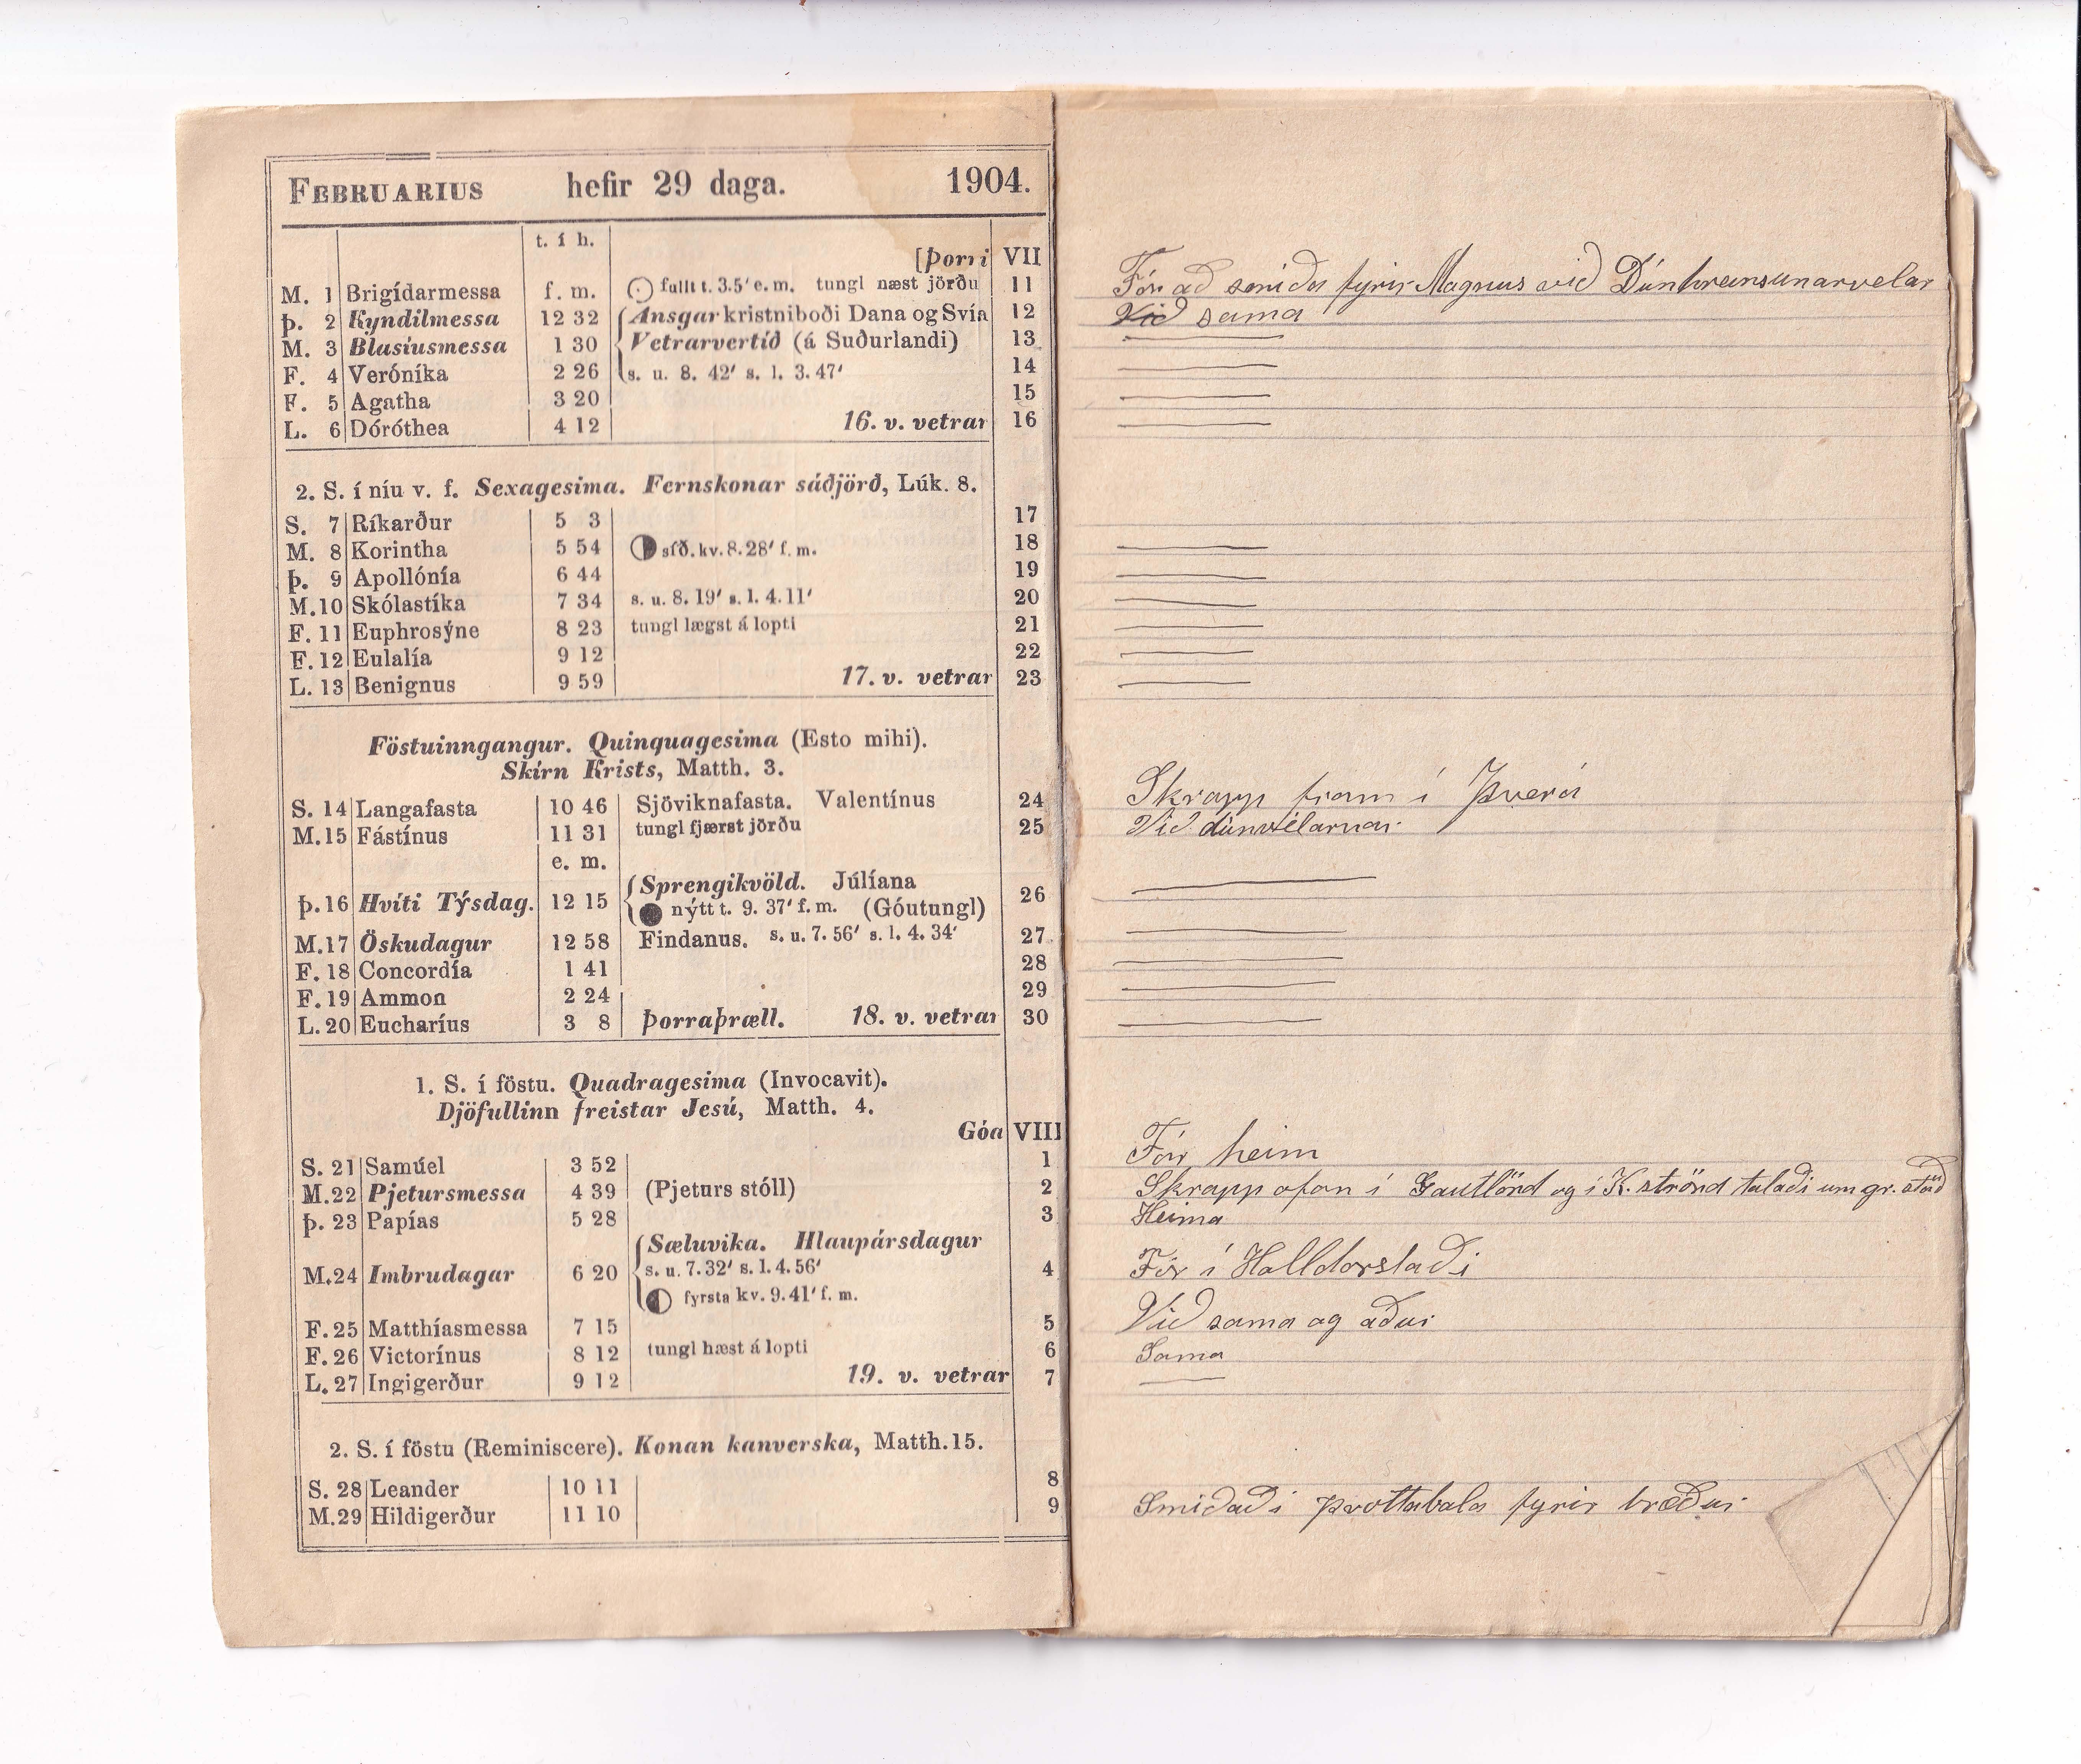 FEBRUARIUS hefir 29 daga. 1904.
t. í h.
[Þorri VII
M. 1 Brigídarmessa f. m. fullt t. 3.5' e. m. tungl næst jörðu 11
Þ. 2 Kyndilmessa 12 32 Ansgar kristniboði Dana og Svía 12
M. 3 Blasíusmessa 1 30 Vetrarvertíð (á Suðurlandi) 13
F. 4 Verónika 2 26 s. u. 8. 42' s. l. 3. 47' 14
F. 5 Agatha 3 20 15
L. 6 Dóróthea 4 12 16. v. vetrar 16
2. S. í níu v. f. Sexagesima. Fernskonar sáðjörð, Lúk. 8.
S. 7 Ríkarður 5 3 17
M. 8 Korintha 5 54 síð. kv. 8. 28' f. m. 18
Þ. 9 Apollónía 6 44 19
M. 10 Skólastíka 7 34 s. u. 8. 19' s. l. 4. 11' 20
F. 11 Euphrosýne 8 23 tungl lægst á lopti 21
F. 12 Eulalía 9 12 22
L. 13 Benignus 9 59 17. v. vetrar 23
Föstuinngangur. Quinquagesima (Esto mihi).
Skírn Krists, Matth. 3.
S. 14 Langafasta 10 46 Sjöviknafasta. Valentínus 24
M. 15 Fástínus 11 31 tungl fjærst jörðu 25
e. m.
Sprengikvöld. Júlíana
Þ. 16 Hvíti Týsdag. 12 15 nýtt t. 9. 37' f. m. (Góutungl) 26
M. 17 Öskudagur 12 58 Findanus. s. u. 7. 56' s. l. 4. 34' 27
F. 18 Concordía 1 41 28
F. 19 Ammon 2 24 29
L. 20 Eucharíus 3 8 Þorraþræll. 18. v. vetrar 30
1. S. í föstu. Quadragesima (Invocavit).
Djöfullinn freistar Jesú, Matth. 4.
Góa VIII
S. 21 Samúel 3 52 1
M. 22 Pjetursmessa 4 39 (Pjeturs stóll) 2
Þ. 23 Papías 5 28 3
Sæluvika. Hlaupársdagur
M. 24 Imbrudagar 6 20 s. u. 7. 32' s. l. 4. 56' 4
fyrsta kv. 9. 41' f. m.
F. 25 Matthíasmessa 7 15 5
F. 26 Victorínus 8 12 tungl hæst á lopti 6
L. 27 Ingigerður 9 12 19. v. vetrar 7
2. S. í föstu (Reminiscere). Konan kanverska, Matth. 15.
S. 28 Leander 10 11 8
M. 29 Hildigerður 11 10 9
Fór að smiða fyrir Magnus við Dúnhreinsunarvelar
Við sama
Skrapp fram í Þverá
Við dúnvélarnar
Fór heim
Skrapp ofan í Gautlönd og í K. strönd talaði um gr. stað
Heima
Fór í Halldorstaði
Við sama og aður
Sama
Smiðaði þvottabala fyrir bræður